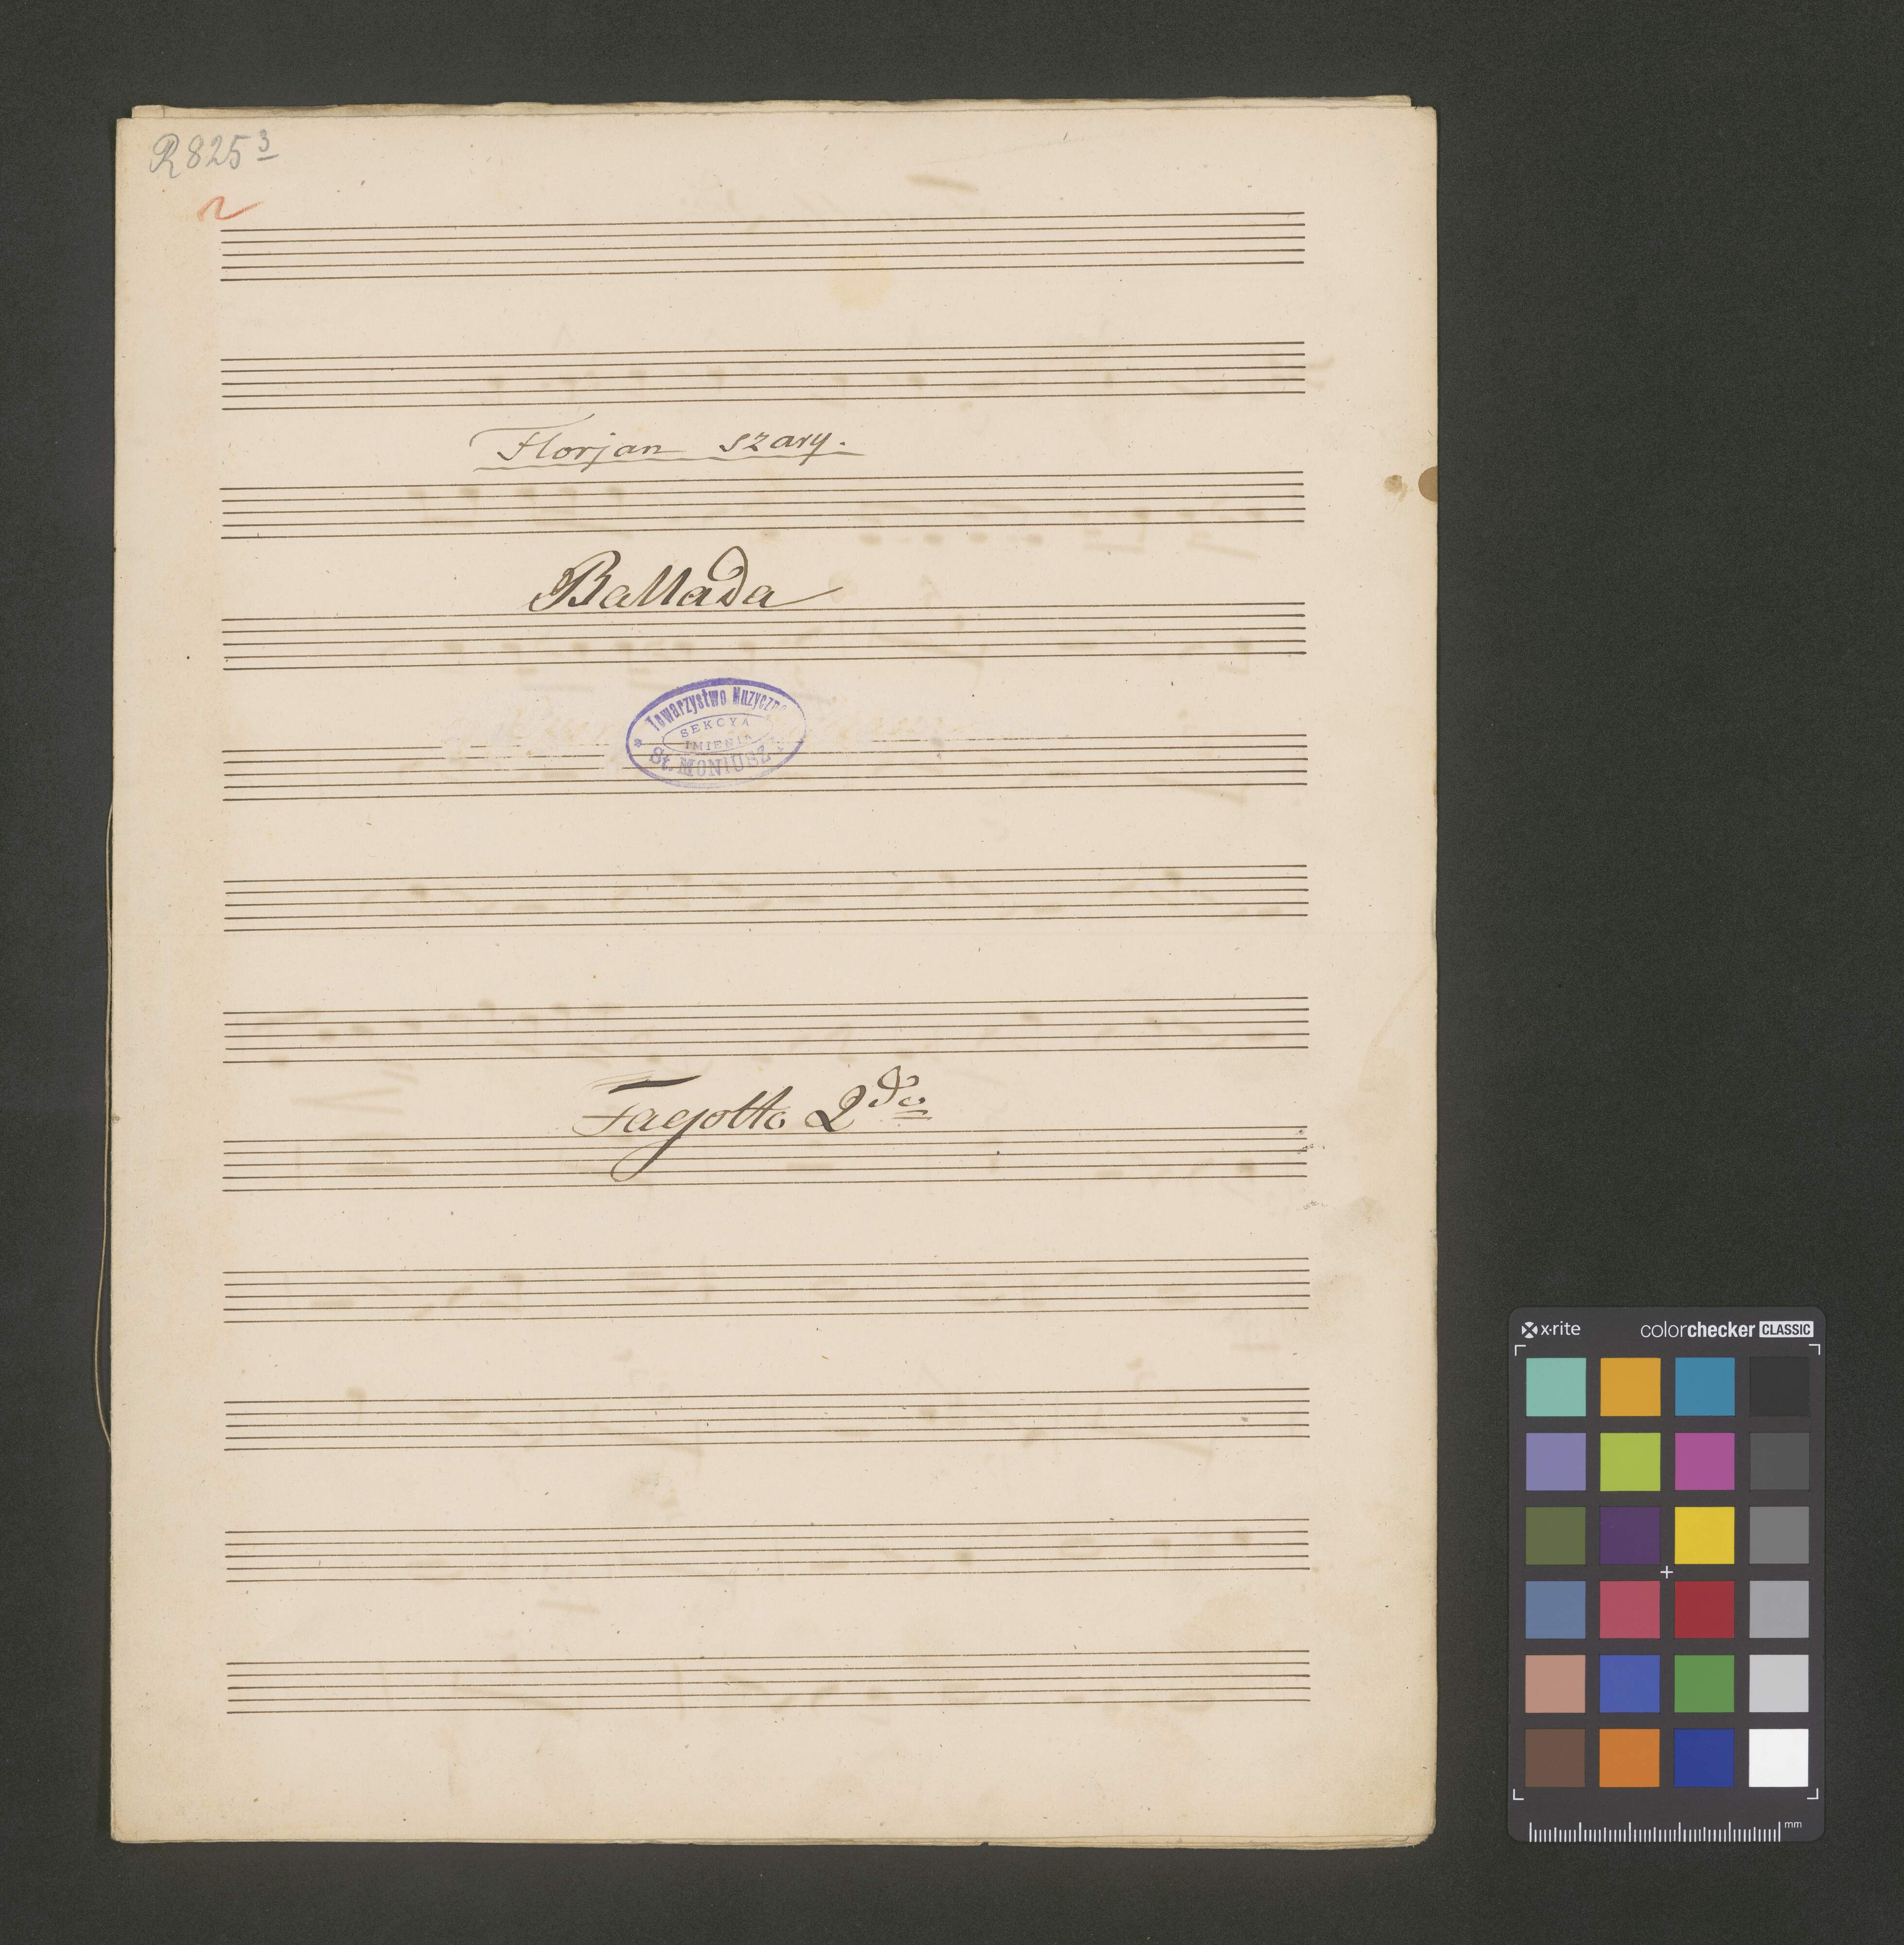 R825 3
Florjan szary.
Ballada
Towarzystwo Muzyczne
SEKCYA
IMIENIA
St. MONIUSZ
Fagotto 2do
x-rite colorchecker CLASSIC
mm